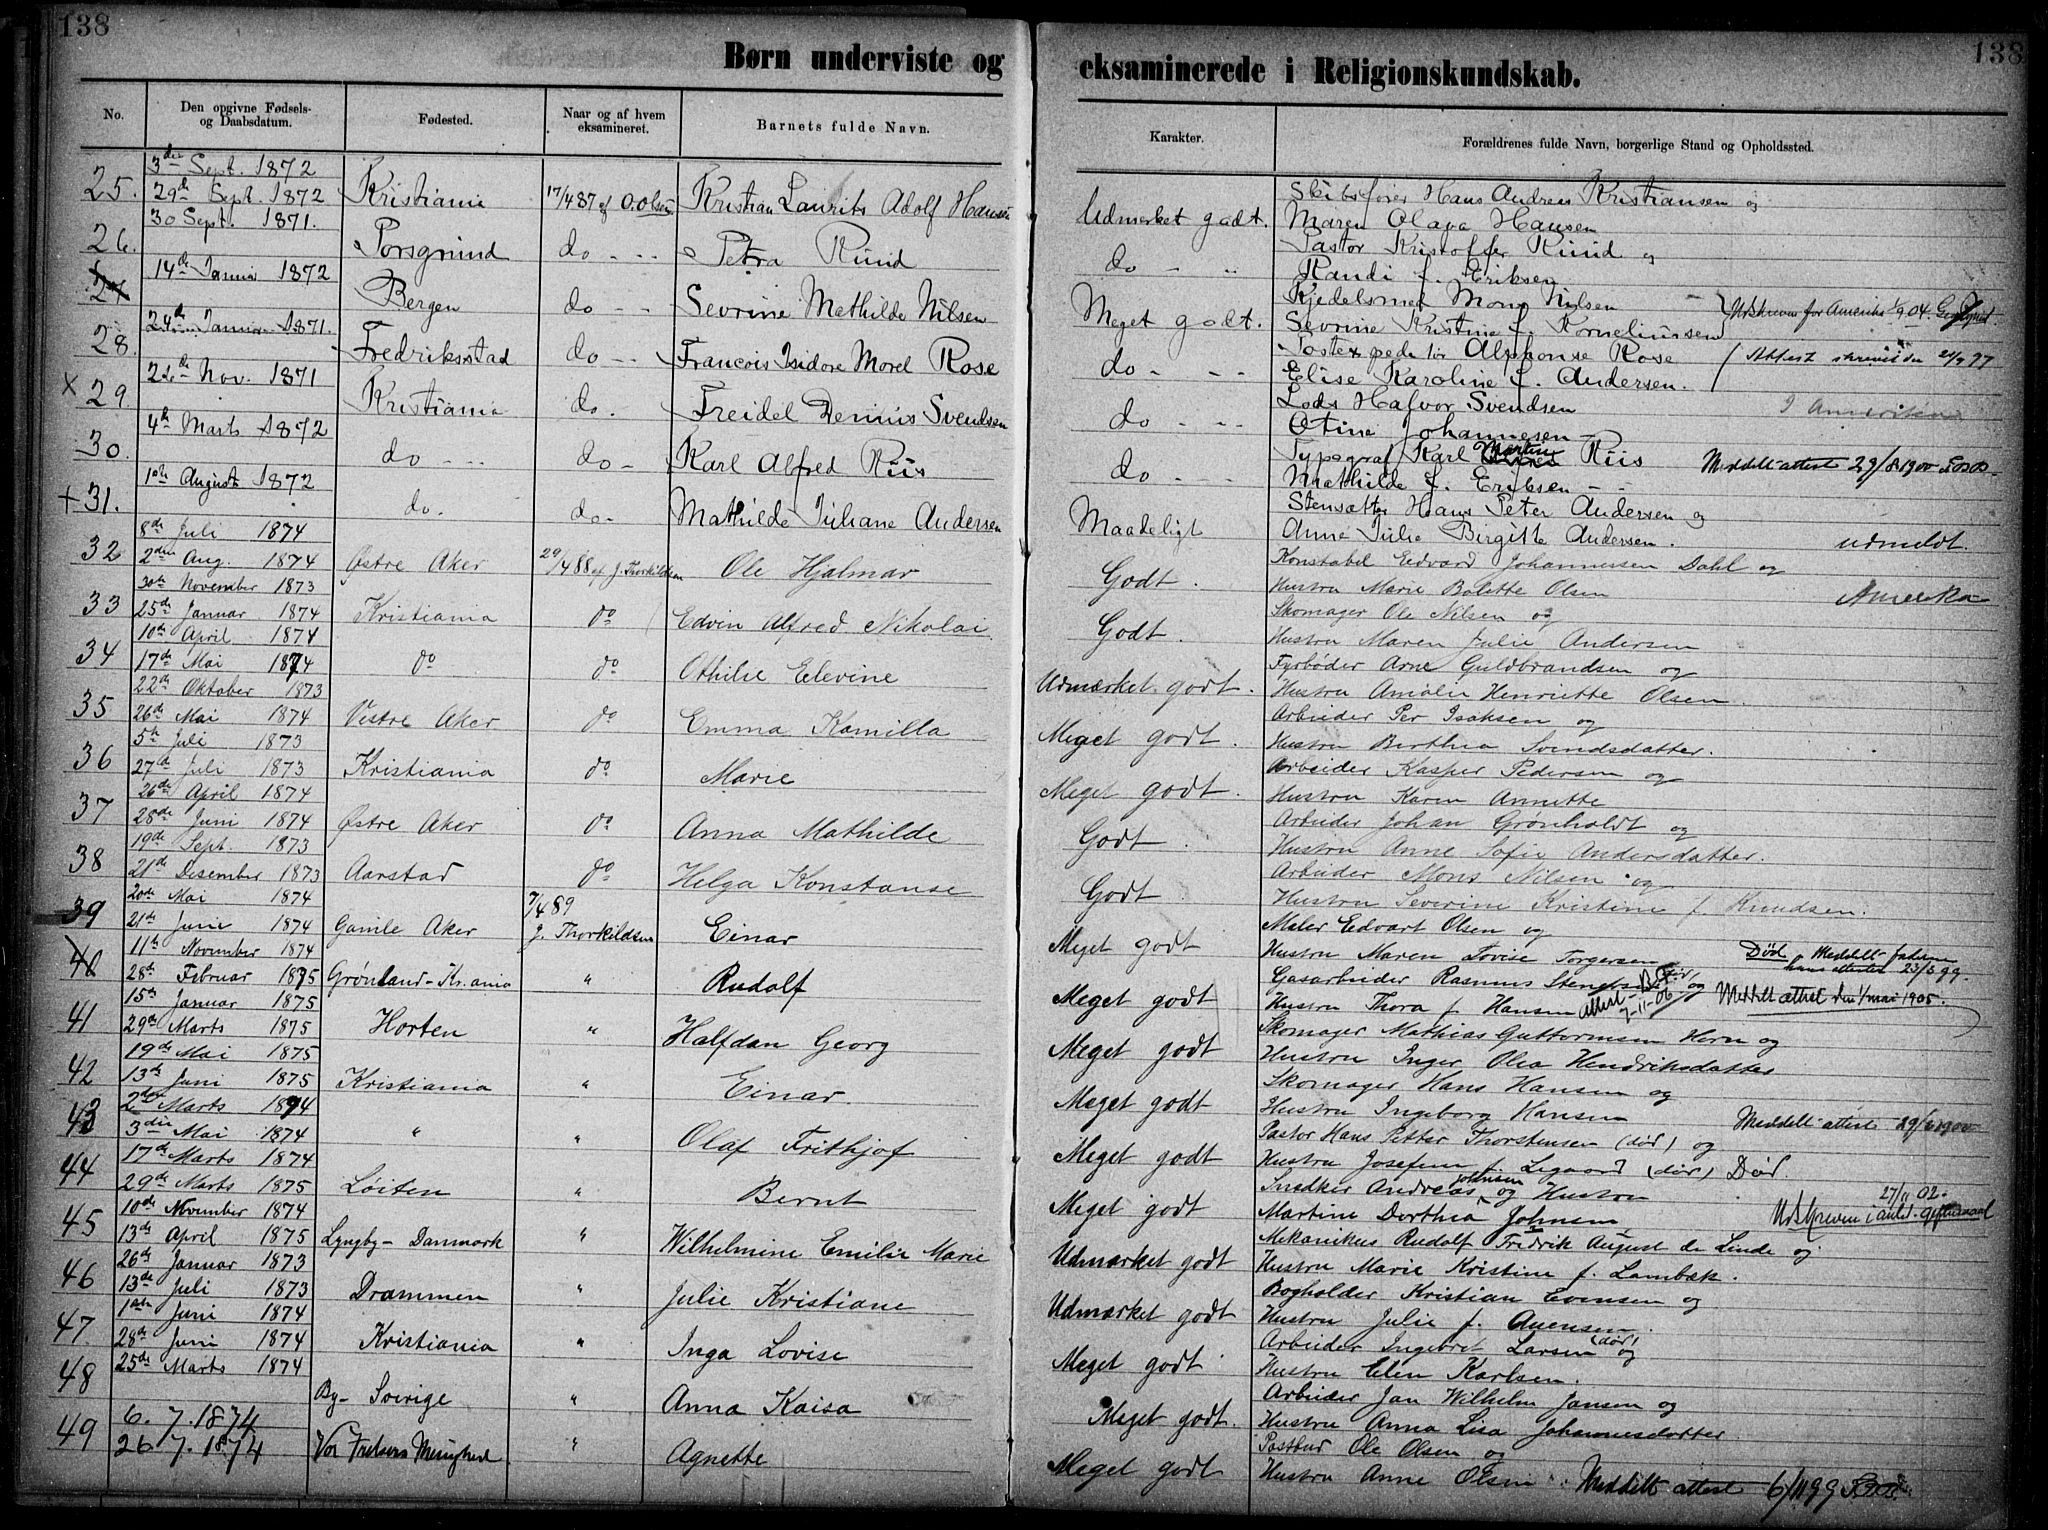 138
138
Børn underviste og eksaminerede i Religionskundskab.
No.
Den opgivne Fødsels- og Daabsdatum.
Fødested.
Naar og af hvem eksamineret.
Barnets fulde Navn.
Karakter.
Forældrenes fulde Navn, borgerlige Stand og Opholdssted.
3die Sept. 1872
25. 29de Sept. 1872 Kristiania 17/4 87 af O. Olsen Kristian Laurits Adolf Hansen Udmerket godt.
Skibsfører Hans Andreas Kristiansen og
Maren Olava Hansen
30 Sept. 1871.
26. Porsgrund do Petra Rund do
Pastor Kristoffer Rund og
Randi f. Eriksen
14de Januar 1872
27 Bergen do Sevrine Mathilde Nilsen Meget godt.
Kjedelsmed Mons Nilsen
Sevrine Kristine f. Korneliussen
Udskreven for Amerika 1/9 04.
24de Januar 1871.
28. Fredriksstad do Francois Isidore Morel Rose do
Postexpeditør Alphonse Rose
Elise Karoline f. Andersen.
Attest skrevet den
26de Nov. 1871
x 29. Kristiania do. Freidel Dennis Svendsen do
Lods Halvor Svendsen
Otine Johannesen
I Amerika
4th Marts 1872
30. do do Karl Alfred Riis do
Typograf Karl Martin Riis
Mathilde f. Eriksen
Meddelt attest 29/8 1900
1ste August 1872
+ 31. do. do Mathilde Juliane Andersen Maadeligt
Stensætter Hans Peter Andersen og
Anne Julie Birgitte Andersen.
udmeldt.
8de Juli 1874
32 2den Aug. 1874 Østre Aker 29/4 88 af J. Thorkildsen Ole Hjalmar Godt.
Konstabel Edvard Johannessen Dahl og
Hustru Marie Bolette Olsen
Amerika
30te November 1873
33 25de Januar 1874 Kristiania do Edvin Alfred Nikolai Godt.
Skomager Ole Nilsen og
Hustru Maren Julie Andersen
10th April 1874
34 17de Mai 1874 do do Othilie Elevine Udmærket godt.
Fyrbøder Arne Guldbrandsen og
Hustru Amalie Henriette Olsen.
22de Oktober 1873
35 26de Mai 1874 Vestre Aker do Emma Kamilla Meget godt.
Arbeider Per Isaksen og
Hustru Berthea Svendsdatter.
5th Juli 1873
36 27de Juli 1873 Kristiania do Marie Meget godt.
Arbeider Kasper Pedersen og
Hustru Karen Annette
26de April 1874
37 28de Juni 1874 Østre Aker do Anna Mathilde Godt.
Arbeider Johan Grønholdt og
Hustru Anne Sofie Andersdatter.
19de Sept. 1873
38 21de Desember 1873 Aarstad do Helga Konstanse Godt
Arbeider Mons Nilsen og
Hustru Severine Kristine f. Knudsen.
20de Mai 1874
39 21de Juni 1874 Gamle Aker 7/4 89 J. Thorkildsen Einar Meget godt
Maler Edvart Olsen og
Hustru Maren Lovise Torgersen
Død Meddelt faderen hans attester 23/5 99.
11th November 1874
40 28de Februar 1875 Grønland-Kr.ania " Rudolf Meget godt
Gasarbeider Rasmus og
Hustru Thora f. Hansen
attest 7-11-06
Meddelt attest den 1 mai 1905.
15th Januar 1875
41 29de Marts 1875 Horten " Halfdan Georg Meget godt
Skomager Mathias Guttormsen Horn og
Hustru Inger Olea Hendriksdatter
19de Mai 1875
42 13th Juni 1875 Kristiania " Einar Meget godt
Skomager Hans Hansen og
Hustru Ingeborg Hansen
Meddelt attest 29/6 1900
2den Marts 1874
43 3die Mai 1874 " " Olaf Frithjof Meget godt
Pastor Hans Petter Thorstensen (død) og
Hustru Josefine f. Legaard (død) Død.
17de Marts 1874
44 29de Marts 1875 Løiten " Bernt Meget godt
Snedker Andreas Johnsen og Hustru
Martine Dorthea Johnsen
27/9 02. Udskreven
10de November 1874
45 13de April 1875 Lyngby-Danmark " Wilhelmine Emilie Marie Udmærket godt
Mekanikus Rudolf Fredrik August de Linde og
Hustru Marie Kristine f. Lambæk.
26de Januar 1873
46 13de Juli 1873 Drammen " Julie Kristiane Udmærket godt
Bogholder Kristian Evensen og
Hustru Julie f. Auensen.
1ste Juni 1874
47. 28de Juni 1874 Kristiania " Inga Lovise Meget godt
Arbeider Ingebret Larsen (død) og
Hustru Elen Karlsen.
25de Marts 1874
48 By- Sverige " Anna Kaisa Meget godt.
Arbeider Jan Wilhelm Jansen og
Hustru Anna Lisa Johannesdotter.
6. 7. 1874
49 26. 7. 1874 Vor Frelsers Menighed " Agnette Meget godt
Postbud Ole Olsen og
Hustru Anne Olsen. Meddelt attest 6/11 99